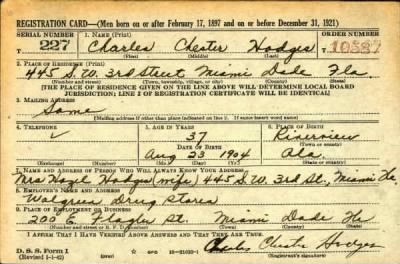 REGISTRATION CARD—(Men born on or after February 17, 1897 and on or before December 31, 1921)
SERIAL NUMBER 1. NAME (Print) ORDER NUMBER
227 Charles Chester Hodges 10587
(First) (Middle) (Last)
2. PLACE OF RESIDENCE (Print)
445 S.W. 3rd Street Miami Dade Fla
(Number and street) (Town, township, village, or city) (County) (State)
[THE PLACE OF RESIDENCE GIVEN ON THE LINE ABOVE WILL DETERMINE LOCAL BOARD
JURISDICTION; LINE 2 OF REGISTRATION CERTIFICATE WILL BE IDENTICAL]
3. MAILING ADDRESS
Same
[Mailing address if other than place indicated on line 2. If same insert word same]
4. TELEPHONE 5. AGE IN YEARS 6. PLACE OF BIRTH
37 Riverview
DATE OF BIRTH (Town or county)
Aug 29 1904 Ala.
(Exchange) (Number) (Mo.) (Day) (Yr.) (State or country)
7. NAME AND ADDRESS OF PERSON WHO WILL ALWAYS KNOW YOUR ADDRESS
Mrs Hazel Hodges (wife) 445 S.W. 3rd St., Miami Fla.
8. EMPLOYER'S NAME AND ADDRESS
Walgreen Drug Stores
9. PLACE OF EMPLOYMENT OR BUSINESS
200 E. Flagler St. Miami Dade Fla
(Number and street or R. F. D. number) (Town) (County) (State)
I AFFIRM THAT I HAVE VERIFIED ABOVE ANSWERS AND THAT THEY ARE TRUE.
D. S. S. Form 1
(Revised 1-1-42)
Charles Chester Hodges
(Registrant's signature)